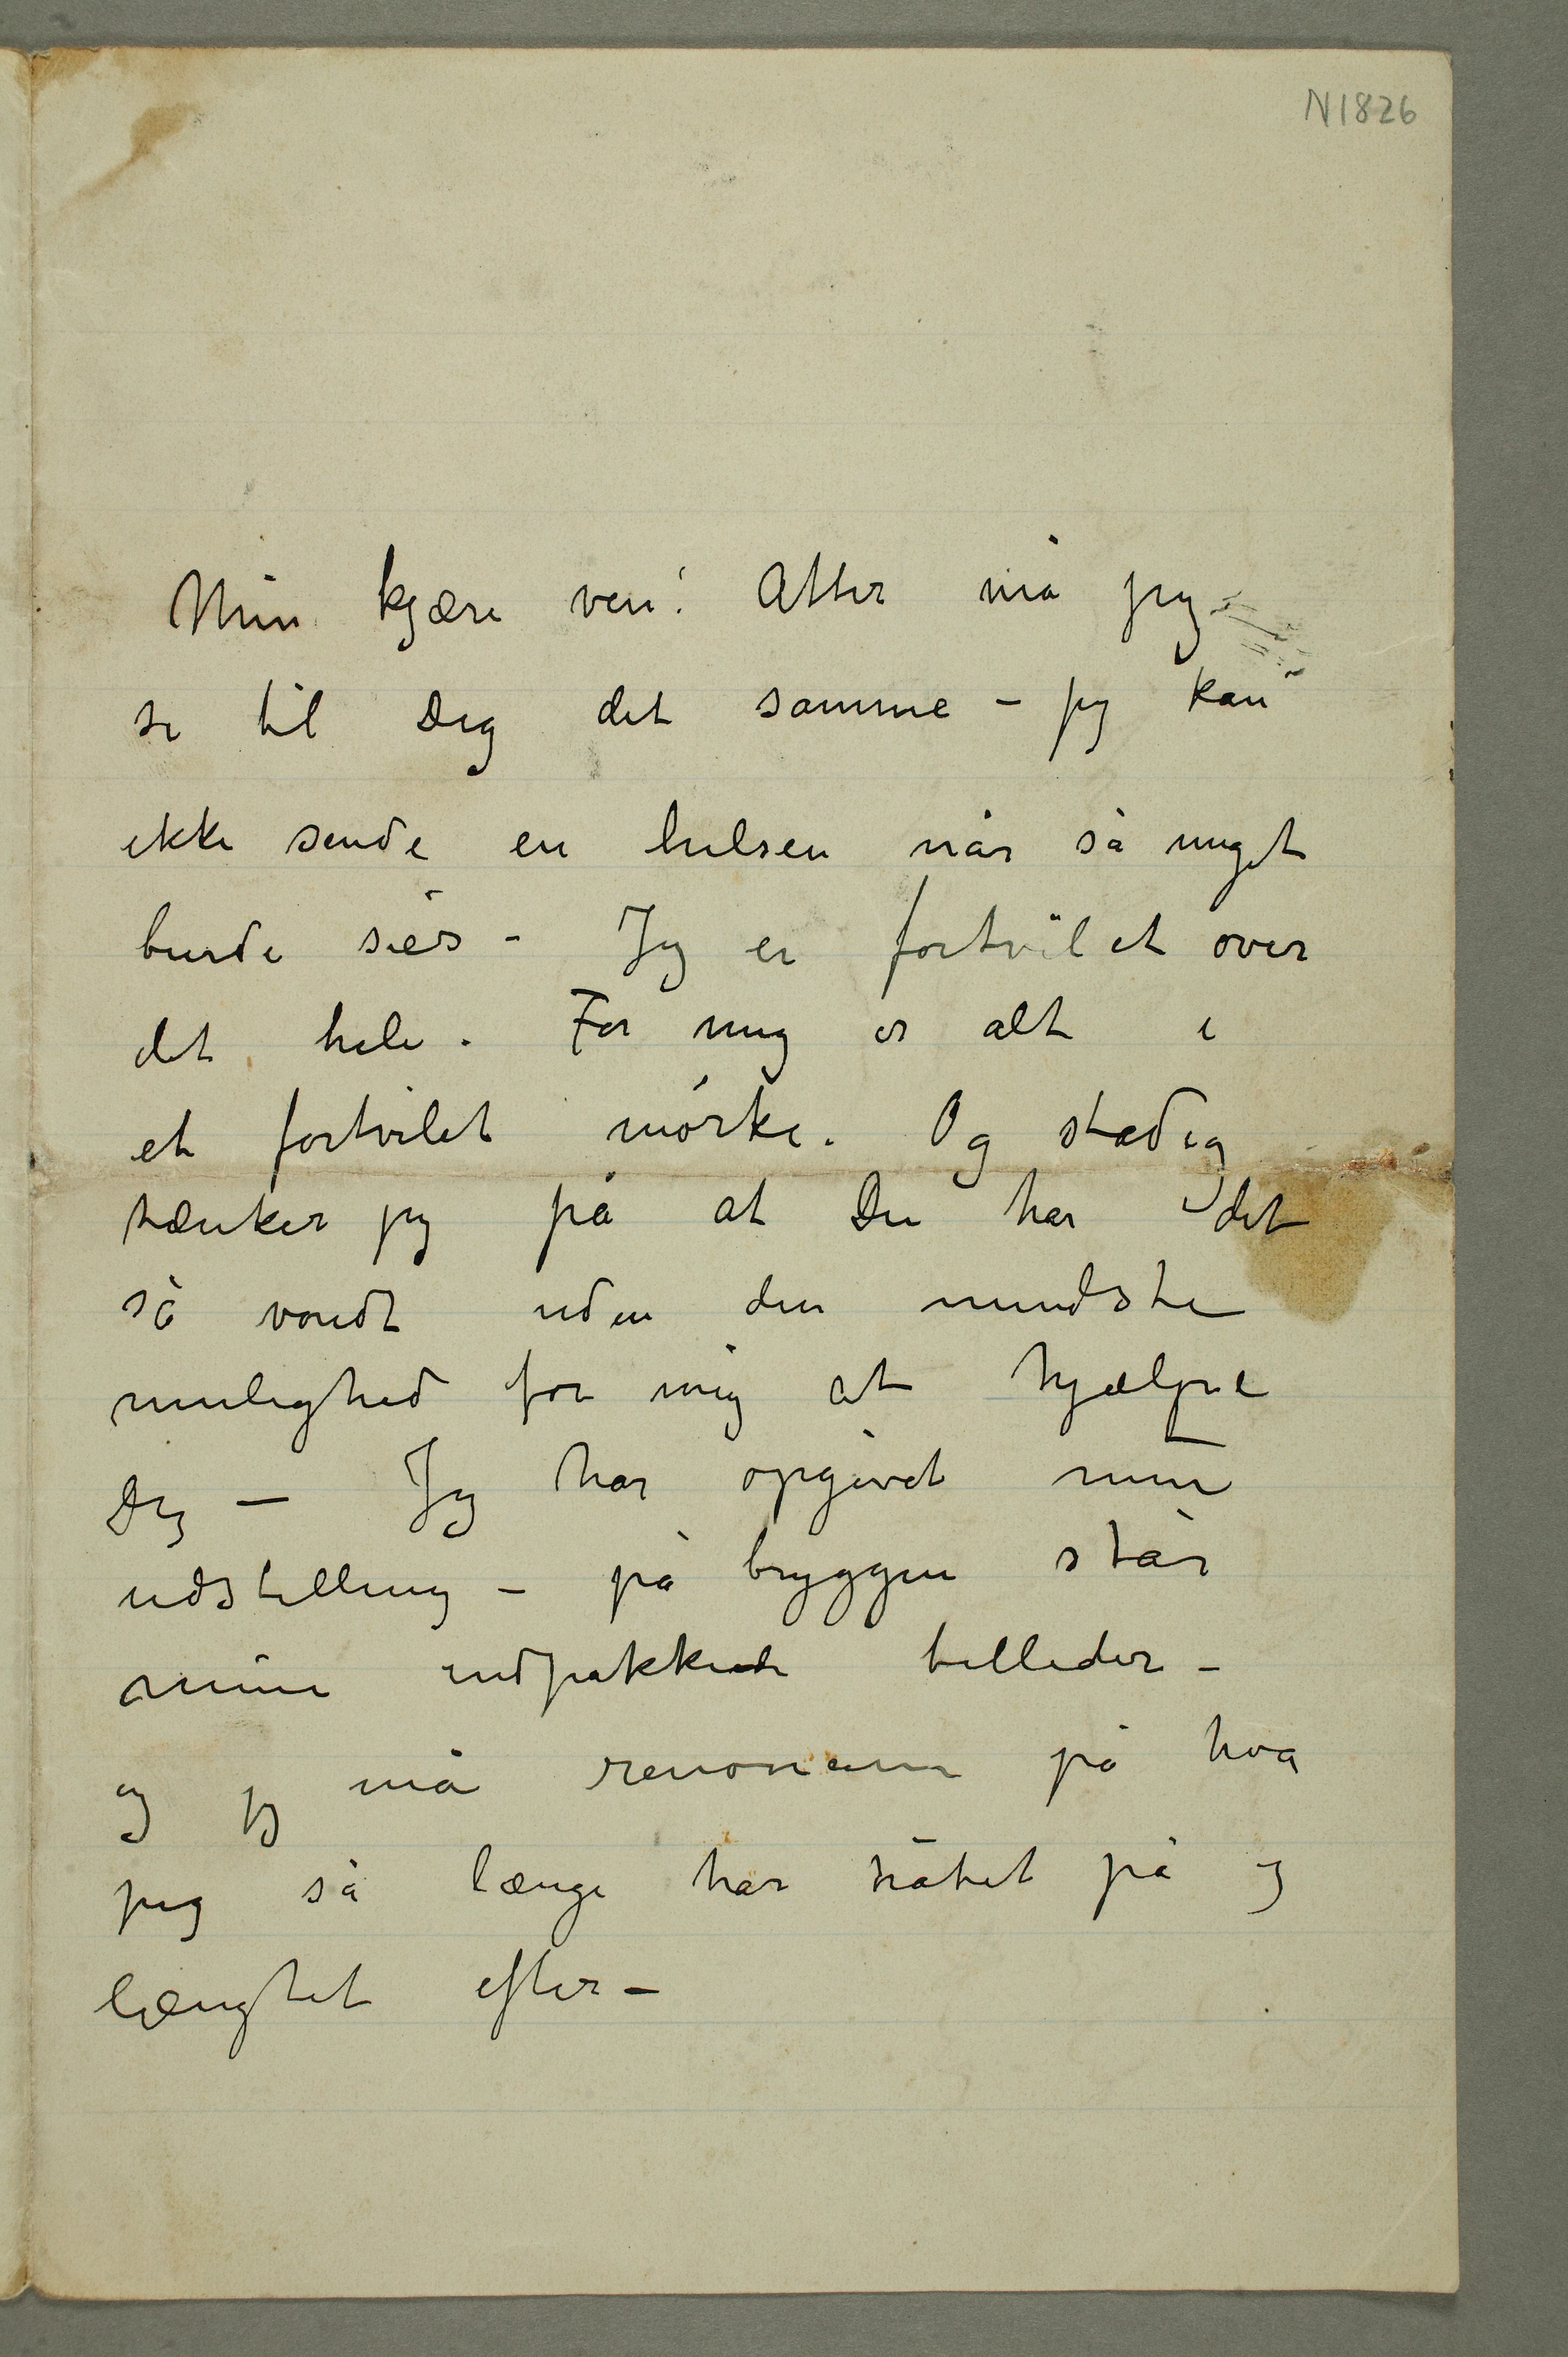 N1826
Min kjære ven! Atter må jeg
si til Dig det samme – jeg kan
ikke sende en hilsen når så meget
burde siés – Jeg er fortvilet over
det hele. For mig er alt i
et fortvilet mørke. Og stadig
tænker jeg på at Du har det
så vondt uden den mindste
mulighed for mig at hjælpe
Dig – Jeg har opgivet min
udstilling – på bryggen står
mine indpakkede billeder –
og jeg må renoncere på hva
jeg så længe har håbet på og
længtet efter –